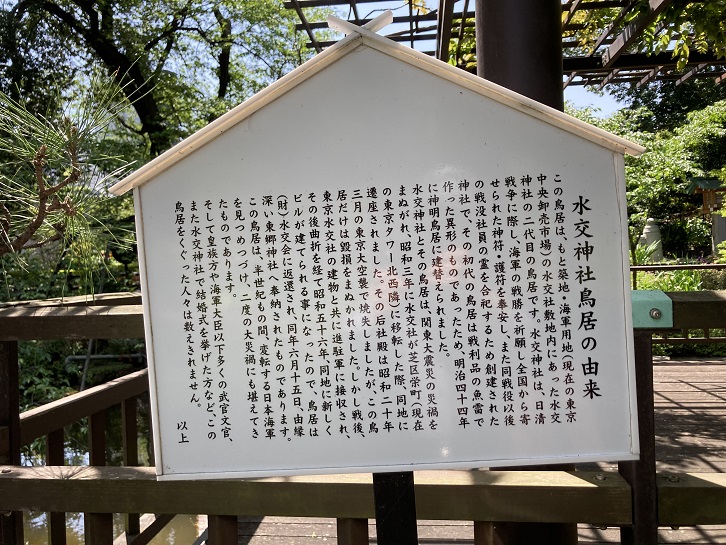 水交神社鳥居の由来
この鳥居は、もと築地・海軍用地(現在の東京
中央卸売市場)の水交社敷地内にあった水交
神社の二代目の鳥居です。水交神社は、日清
戦争に際し、海軍の戦勝を祈願し全国から寄
せられた神符・護符を奉安し、また同戦役以後
の戦没社員の霊を合祀するため創建された
神社で、その初代の鳥居は戦利品の魚雷で
作った異形のものであったため、明治四十四年
に神明鳥居に建替えられました。
水交神社とその鳥居は、関東大震災の災禍を
まぬがれ、昭和三年に水交社が芝区栄町(現在
の東京タワー北西隣)に移転した際、同地に
遷座されました。その后社殿は昭和二十年
三月の東京大空襲で焼失しましたが、この鳥
居だけは毀損をまぬかれました。しかし戦後、
東京水交社の建物と共に進駐軍に接収され、
その後曲折を経て昭和五十六年、同地に新しく
ビルが建てられる事になったので、鳥居は
(財)水交会に返還され、同年六月十五日、由縁
深い東郷神社へ奉納されたものであります。
この鳥居は、半世紀もの間、変転する日本海軍
を見つめつづけ、二度の大災禍にも堪えてき
たものであります。
そして皇族方や海軍大臣以下多くの武官文官、
また水交神社で結婚式を挙げた方などこの
鳥居をくぐった人々は数えきれません。
以上